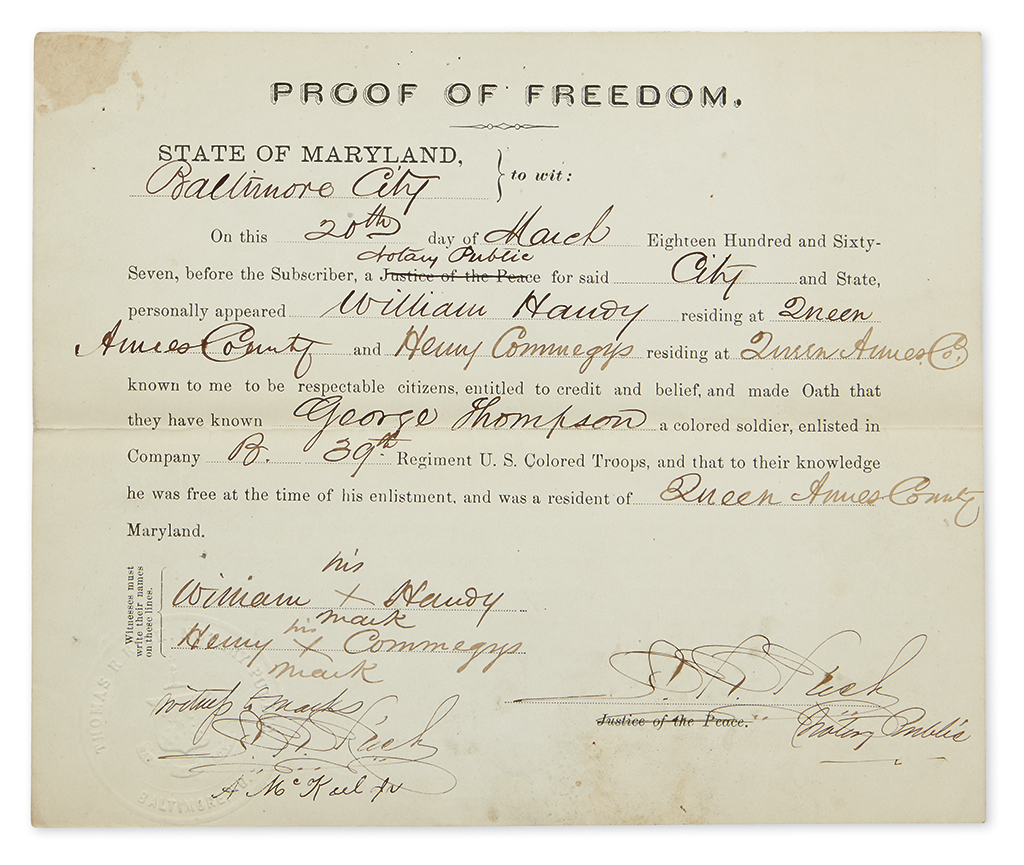 PROOF OF FREEDOM.
STATE OF MARYLAND,
Baltimore City
to wit:
On this 20th day of March Eighteen Hundred and Sixty-
Notary Public
Seven, before the Subscriber, a Justice of the Peace for said City and State,
personally appeared William Handy residing at Queen
Annes County and Henry Commegys residing at Queen Annes Co.
known to me to be respectable citizens, entitled to credit and belief, and made Oath that
they have known George Thompson a colored soldier, enlisted in
Company B. 39th Regiment U. S. Colored Troops, and that to their knowledge
he was free at the time of his enlistment, and was a resident of Queen Annes County
Maryland.
Witnesses must
write their names
on these lines.
his
William X Handy
mark
his
Henry X Commegys
mark
witness to marks
Rich
A Mc Keel Jr
Rich
Justice of the Peace.
Notary Public
THOMAS R.
BALTIMORE